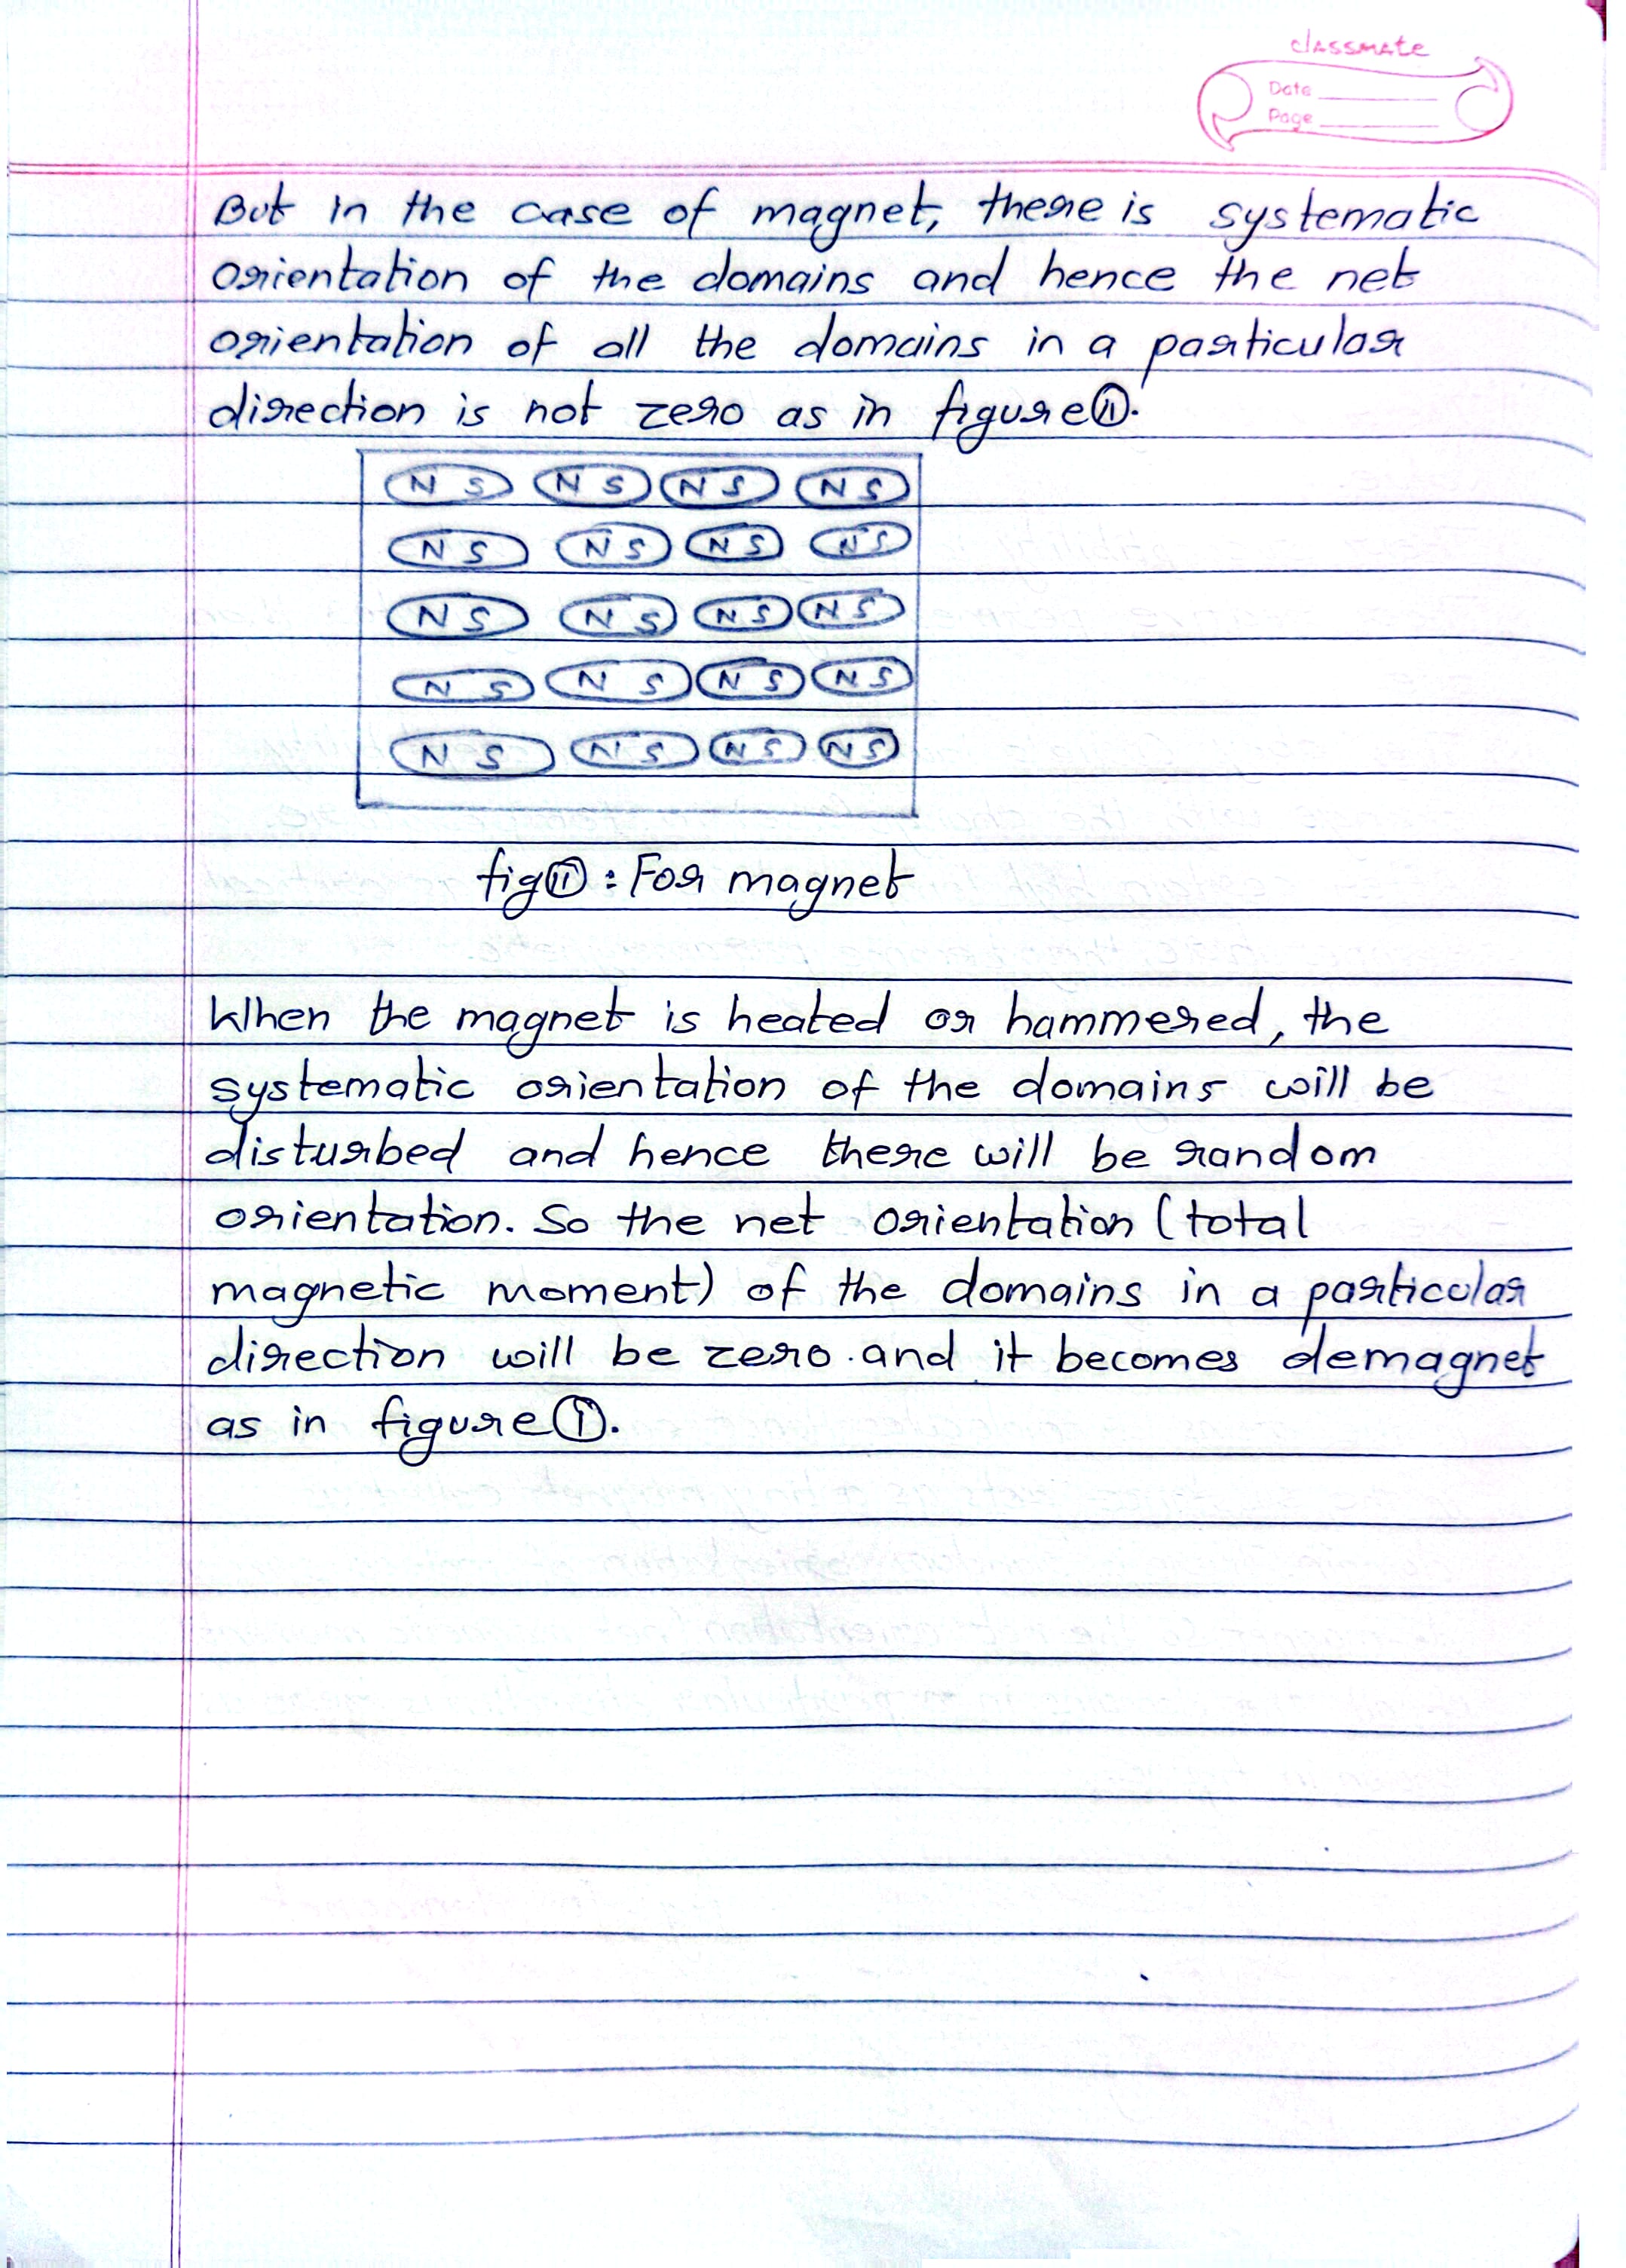 classmate
Date
Page
But in the case of magnet, there is systematic
orientation of the domains and hence the net
orientation of all the domains in a particular
direction is not zero as in figure ⓘⓘ.
N S N S N S N S
N S N S N S N S
N S N S N S N S
N S N S N S N S
N S N S N S N S
fig ⓘⓘ : For magnet
When the magnet is heated or hammered, the
systematic orientation of the domains will be
disturbed and hence there will be random
orientation. So the net orientation (total
magnetic moment) of the domains in a particular
direction will be zero. and it becomes demagnet
as in figure ⓘ.